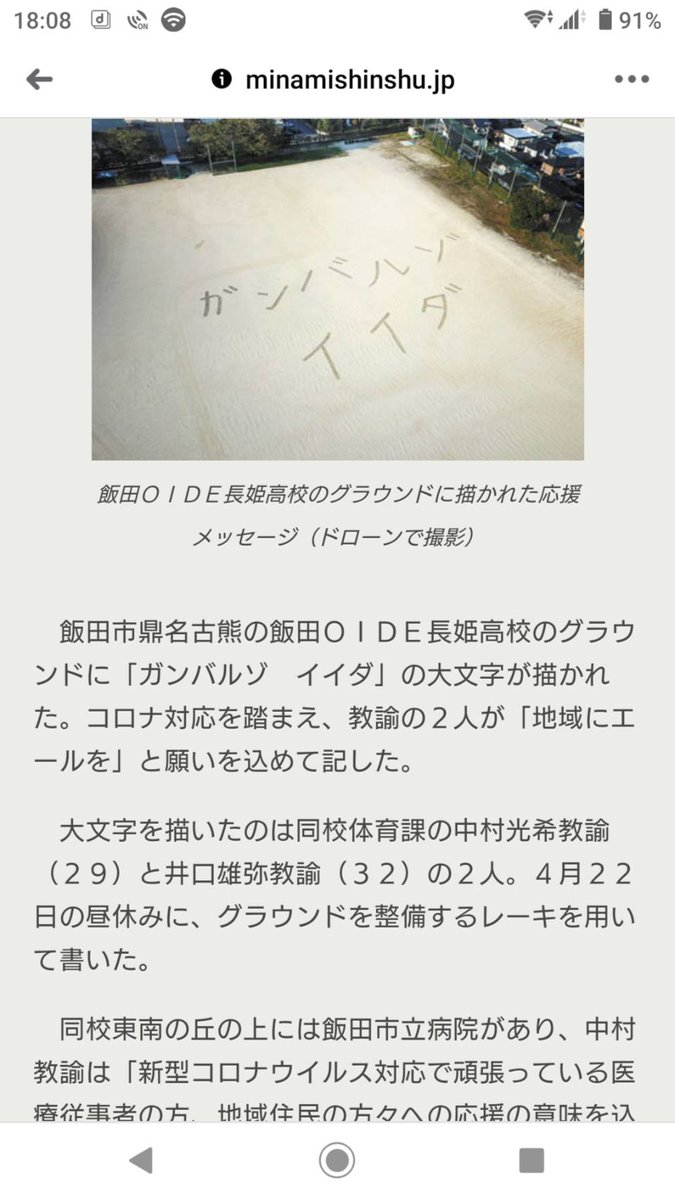 18:08
ON
91%
minamishinshu.jp
ガンバルゾ
イイダ
飯田ＯＩＤＥ長姫高校のグラウンドに描かれた応援
メッセージ（ドローンで撮影）
飯田市鼎名古熊の飯田ＯＩＤＥ長姫高校のグラウ
ンドに「ガンバルゾ　イイダ」の大文字が描かれ
た。コロナ対応を踏まえ、教諭の２人が「地域にエ
ールを」と願いを込めて記した。
大文字を描いたのは同校体育課の中村光希教諭
（２９）と井口雄弥教諭（３２）の２人。４月２２
日の昼休みに、グラウンドを整備するレーキを用い
て書いた。
同校東南の丘の上には飯田市立病院があり、中村
教諭は「新型コロナウイルス対応で頑張っている医
療従事者の方、地域住民の方々への応援の意味を込